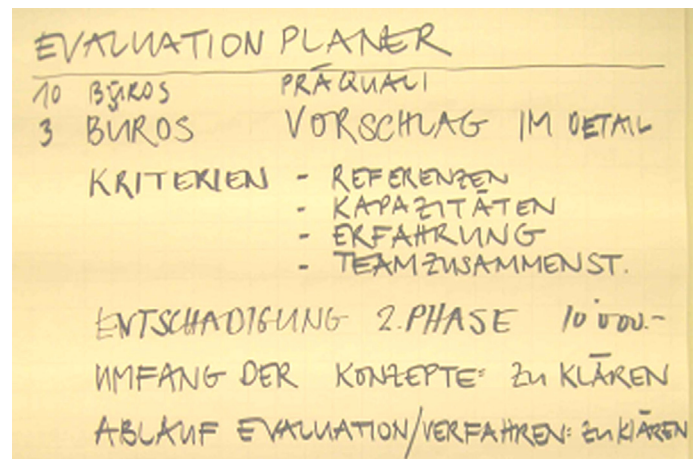 EVALUATION PLANER
10 BÜROS PRÄQUALI
3 BUROS VORSCHLAG IM DETAIL
KRITERIEN - REFERENZEN
- KAPAZITÄTEN
- ERFAHRUNG
- TEAMZUSAMMENST.
ENTSCHADIGUNG 2. PHASE 10'000.-
UMFANG DER KONZEPTE: ZU KLÄREN
ABLAUF EVALUATION/VERFAHREN: ZU KLÄREN